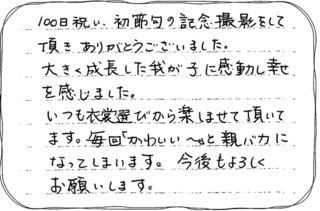 100日祝い、初節句の記念撮影をして
頂き ありがとうございました。
大きく成長した我が子に感動し幸せ
を感じました。
いつも衣裳選びから楽しませて頂いて
ます。毎回「かわいい〜」と親バカに
なってしまいます。今後もよろしく
お願いします。